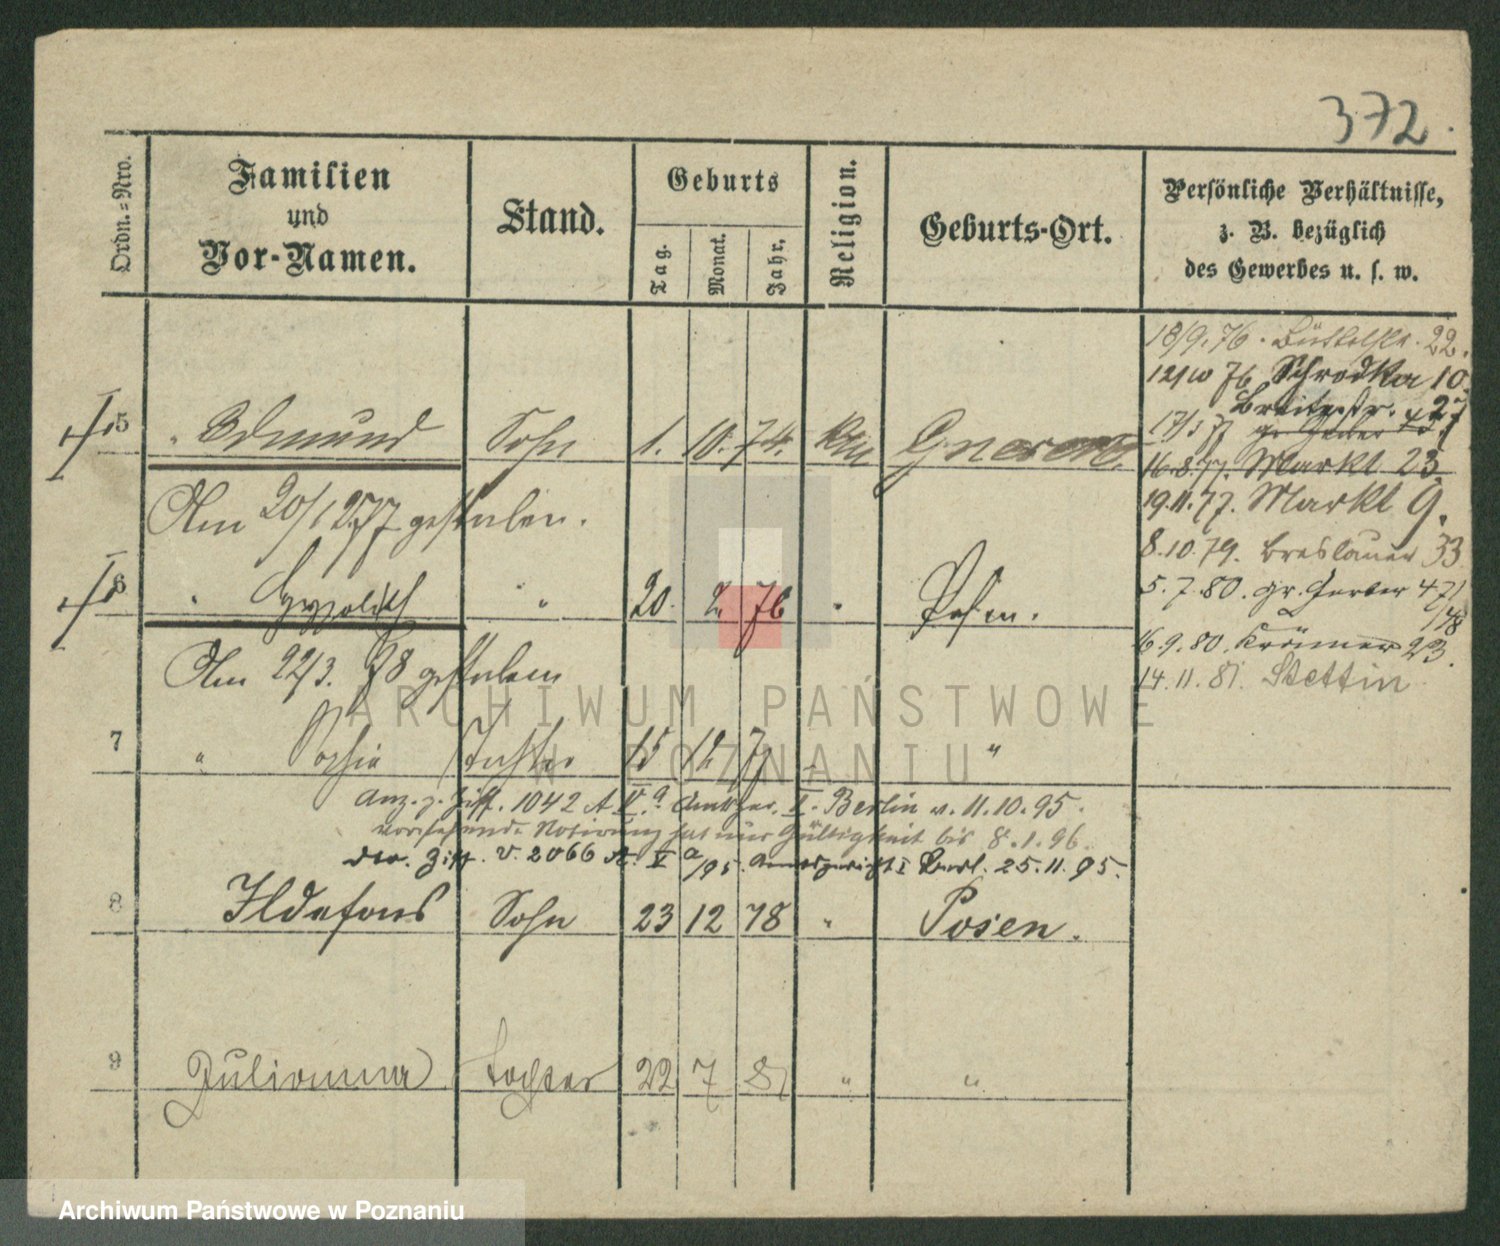 372.
Ordn.-Nro.
Familien
und
Vor-Namen.
Stand.
Geburts
Tag.
Monat.
Jahr.
Religion.
Geburts-Ort.
Persönliche Verhältnisse,
z. B. bezüglich
des Gewerbes u. s. w.
18/9.76. 22.
76 Schrodka 10.
Breitestr. 27
17/3 77
16.8.77. Markt 23
19.11.77. Markt 9.
8.10.79. Breslauer 33
5.7.80. gr. Gerber 47/
/48
16.9.80. Krämer 23.
14.11.81. Stettin
5 " Edmund Sohn 1. 10. 74. Gnesen.
Am 20/1 1877 gestorben.
6 " Hyppolith " 20. 2. 76 " Posen.
Am 22/3. 78 gestorben
7 " Sophie Tochter 15 12 77 "
Anz. z. Ziff. 1042 A V. a Amtsger. I. Berlin v. 11.10.95.
Vorstehende Notirung hat nur Gültigkeit bis 8.1.96.
Ziff. V. 2066 A. V a/95. Amtsgericht I Berl. 25.11.95.
8 Ildefons Sohn 23 12 78 " Posen.
9 Julianna Tochter 22 7 81 " "
ARCHIWUM PAŃSTWOWE
W POZNANIU
Archiwum Państwowe w Poznaniu